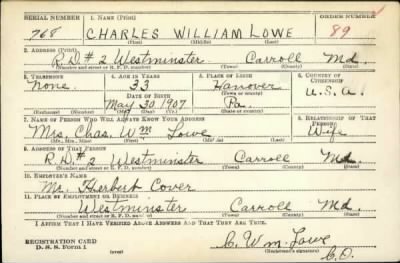 SERIAL NUMBER 1. NAME (Print) ORDER NUMBER
768 CHARLES WILLIAM LOWE 89
(First) (Middle) (Last)
2. ADDRESS (Print)
R.D.#2 Westminster Carroll Md.
(Number and street or R. F. D. number) (Town) (County) (State)
3. TELEPHONE 4. AGE IN YEARS 5. PLACE OF BIRTH 6. COUNTRY OF CITIZENSHIP
None. 33 Hanover U.S.A.
DATE OF BIRTH
May 30 1907 Pa.
(Mo.) (Day) (Yr.)
7. NAME OF PERSON WHO WILL ALWAYS KNOW YOUR ADDRESS 8. RELATIONSHIP OF THAT PERSON
Mrs. Chas. Wm Lowe Wife
(Mr., Mrs., Miss) (First) (Middle) (Last)
9. ADDRESS OF THAT PERSON
R.D.#2 Westminster Carroll Md.
(Number and street or R. F. D. number) (Town) (County) (State)
10. EMPLOYER'S NAME
Mr. Herbert Cover
11. PLACE OF EMPLOYMENT OR BUSINESS
Westminster Carroll Md.
(Number and street or R. F. D. number) (Town) (County) (State)
I AFFIRM THAT I HAVE VERIFIED ABOVE ANSWERS AND THAT THEY ARE TRUE.
REGISTRATION CARD
D. S. S. Form 1 (over)
C. Wm. Lowe